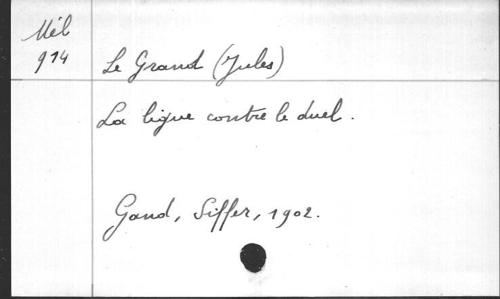 Mél
914
Le Grand (Jules)
La ligue contre le duel.
Gand, Siffer, 1902.